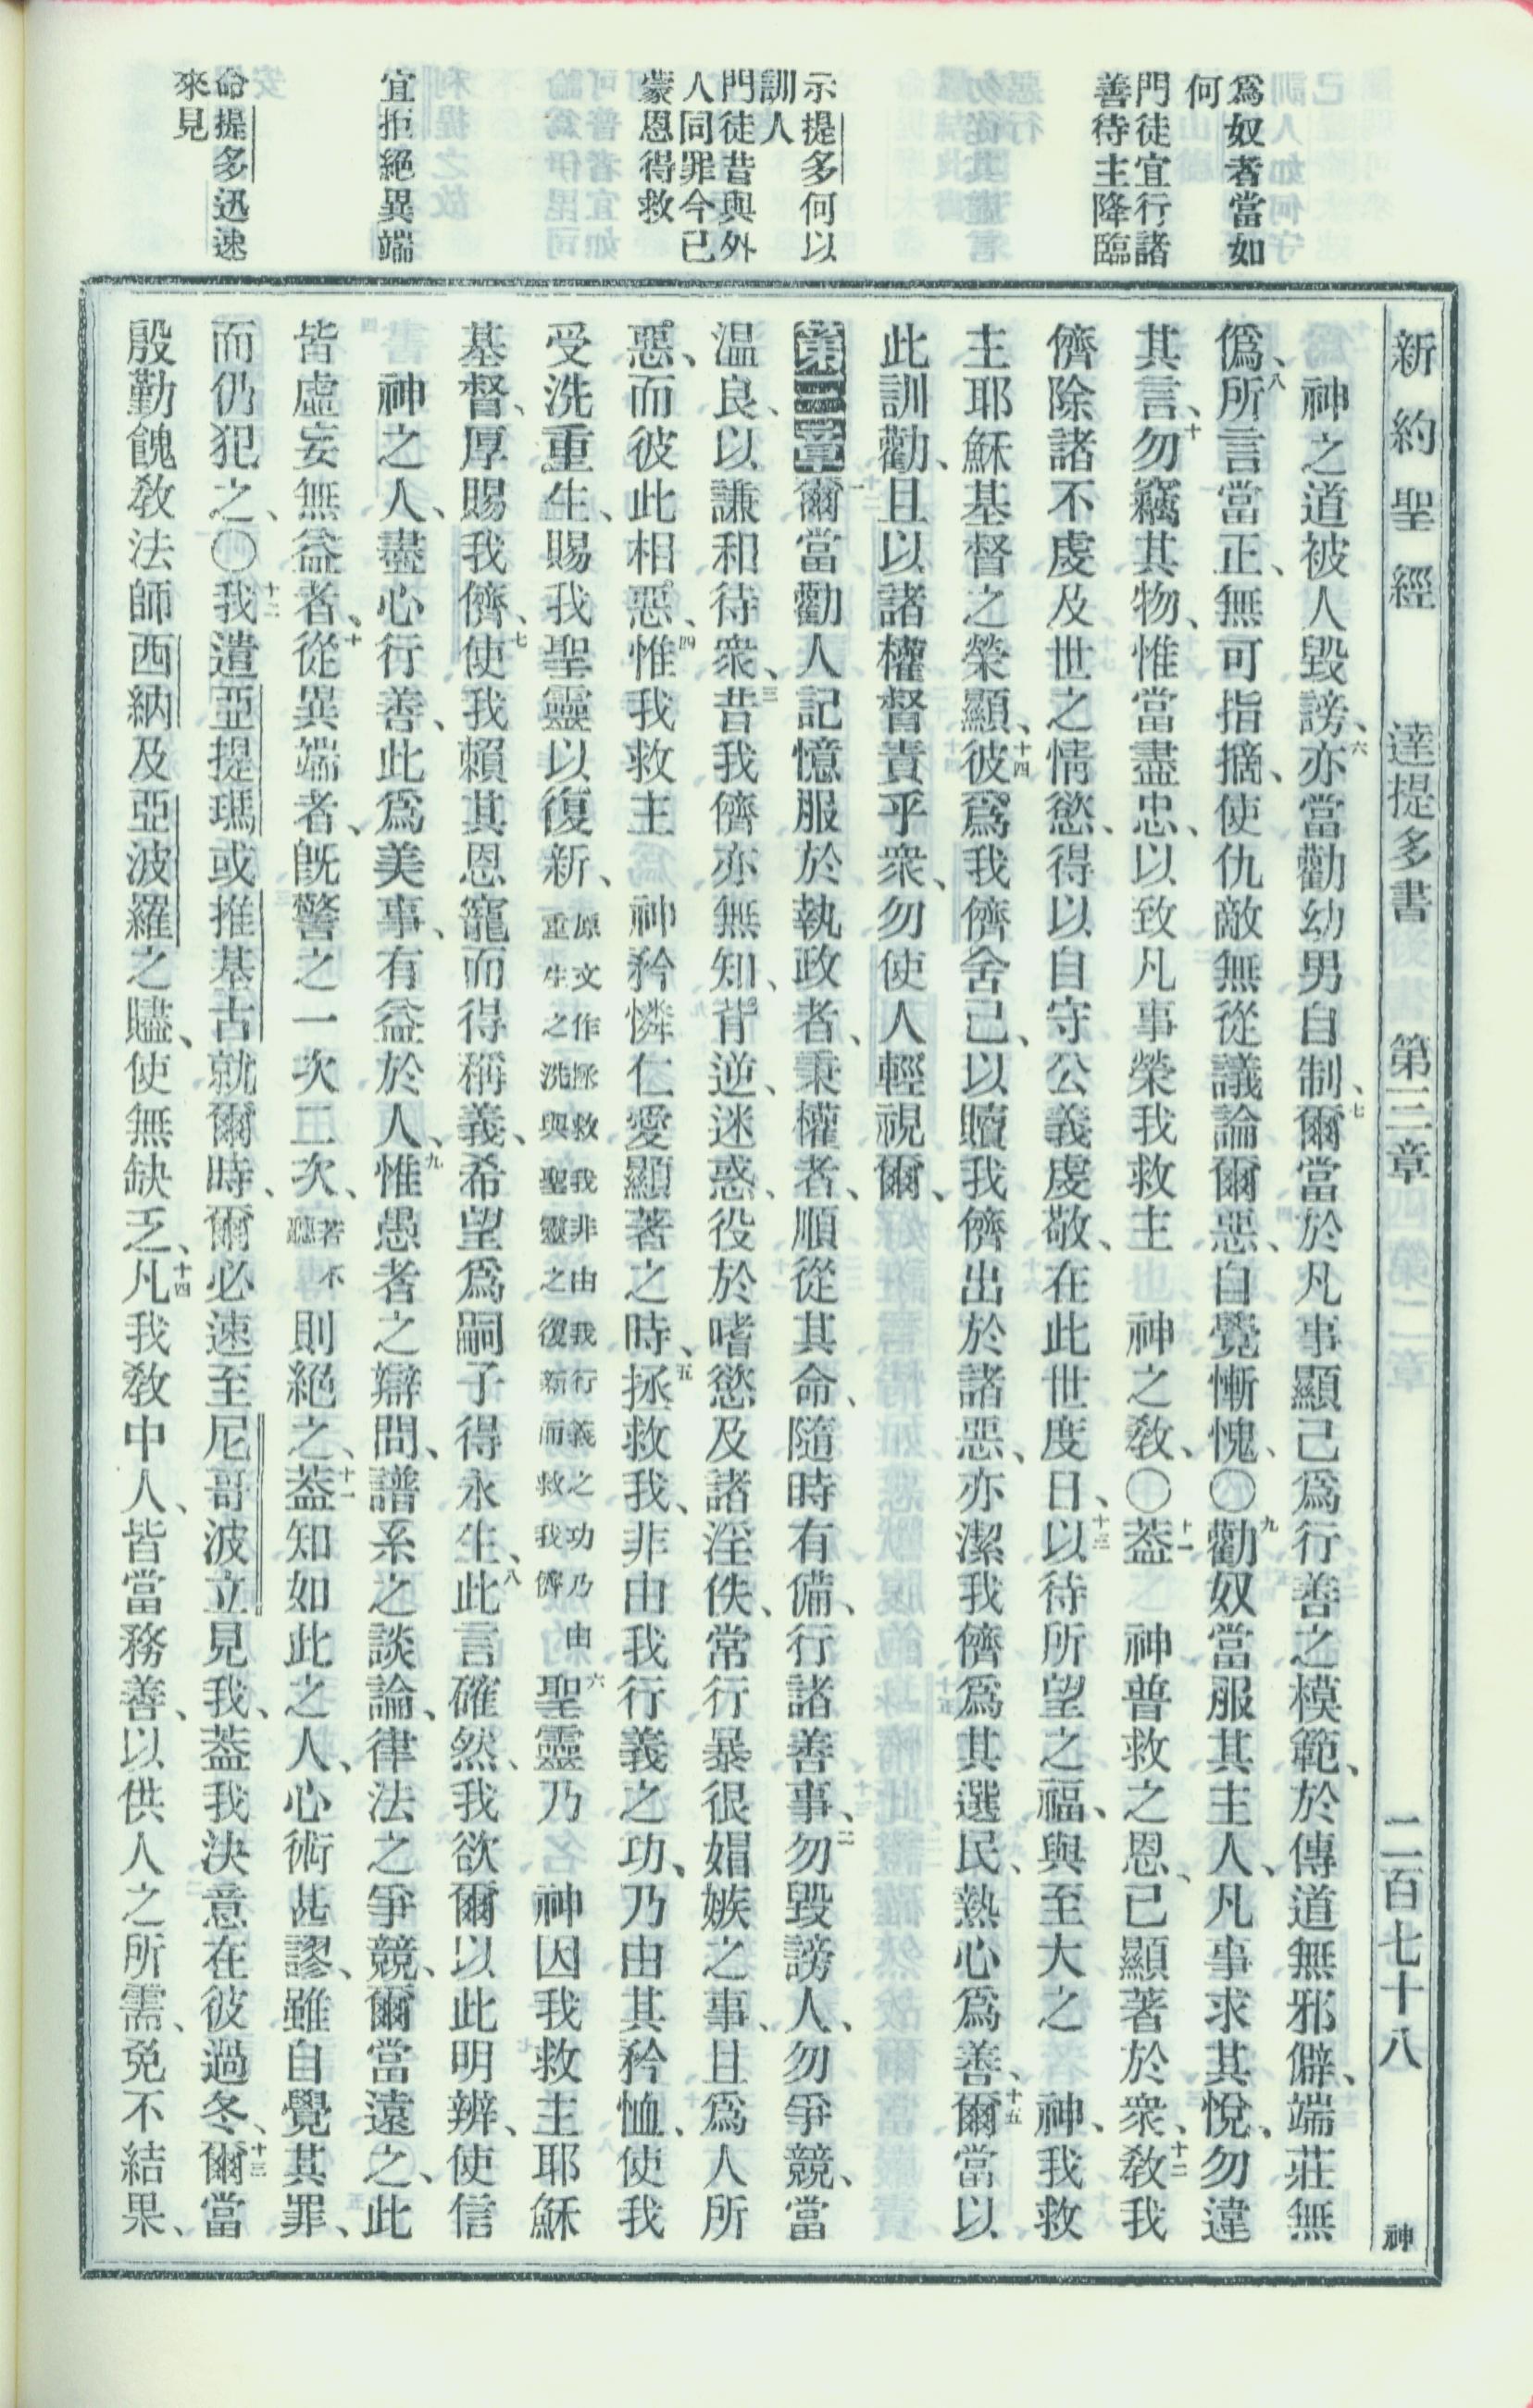 新約聖經　達提多書　第三章　二百七十八　神
爲奴者當如
何
門徒宜行諸
善待主降臨
示提多何以
訓人
門徒昔與外
人同罪今已
蒙恩得救
宜拒絕異端
命提多迅速
來見
神之道被人毀謗、六亦當勸幼男自制、七爾當於凡事顯己爲行善之模範、於傳道無邪僻、端莊無
僞、八所言當正、無可指摘、使仇敵無從議論爾惡、自覺慚愧、〇九勸奴當服其主人、凡事求其悅、勿違
其言、十勿竊其物、惟當盡忠、以致凡事榮我救主　神之敎、〇十一葢　神普救之恩、已顯著於衆、十二敎我
儕除諸不虔及世之情慾、得以自守公義虔敬、在此世度日、十三以待所望之福、與至大之　神、我救
主耶穌基督之榮顯、十四彼爲我儕舍己、以贖我儕出於諸惡、亦潔我儕爲其選民、熱心爲善、十五爾當以
此訓勸、且以諸權督責乎衆、勿使人輕視爾、
第三章一爾當勸人記憶服於執政者、秉權者、順從其命、隨時有備、行諸善事、二勿毀謗人、勿爭競、當
温良、以謙和待衆、三昔我儕亦無知、背逆、迷惑、役於嗜慾及諸淫佚、常行暴很媢嫉之事、且爲人所
惡、而彼此相惡、四惟我救主　神矜憐仁愛顯著之時、五拯救我、非由我行義之功、乃由其矜恤、使我
受洗重生、賜我聖靈以復新、原文作拯救我非由我行義之功乃由重生之洗與聖靈之復新而救我儕六聖靈乃　神因我救主耶穌
基督、厚賜我儕、七使我賴其恩寵而得稱義、希望爲嗣子得永生、八此言確然、我欲爾以此明辨、使信
神之人、盡心行善、此爲美事、有益於人、九惟愚者之辯問、譜系之談論、律法之爭競、爾當遠之、此
皆虛妄無益者、十從異端者、旣警之一次二次、若不聽則絕之、十一葢知如此之人、心術甚謬、雖自覺其罪、
而仍犯之、〇十二我遣亞提瑪或推基古就爾時、爾必速至尼哥波立見我、葢我決意在彼過冬、十三爾當
殷勤餽敎法師西納及亞波羅之贐、使無缺乏、十四凡我敎中人、皆當務善、以供人之所需、免不結果、